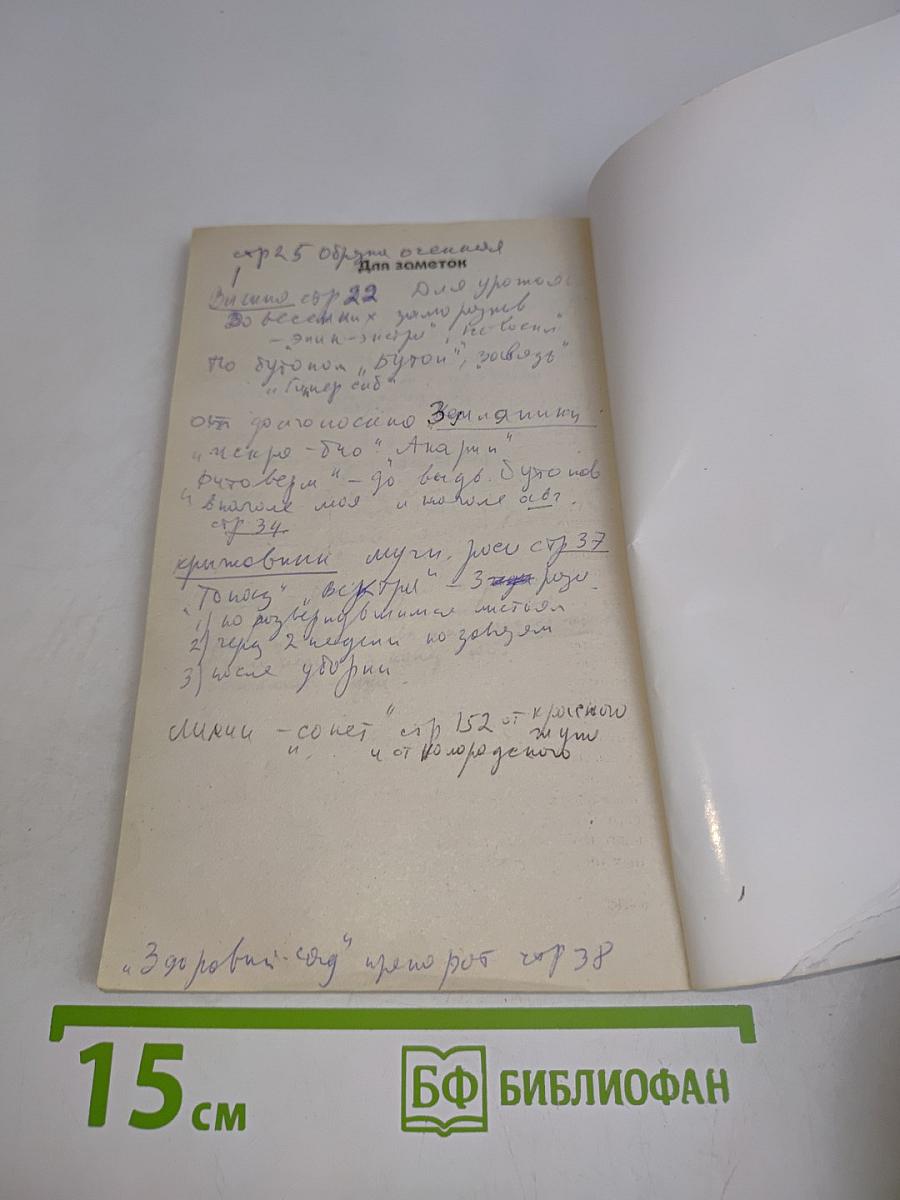 стр 25 Обрезка осенняя
Для заметок
Вишня стр 22 Для урожая
До весенних заморозков
- "Эпин-экстра",
По бутонам "Бутон", "Завязь"
"Гибберсиб"
от долгоносика Земляники
"Искра-био" "Акарин"
"Фитоверм" - до выдв. бутонов
в начале мая и начале авг.
стр 34
крыжовник мучн. роса стр 37
"Топаз" "Вектра" - 3 раза.
1) по развернувшимся листьям
2) через 2 недели по завязям
3) после уборки
Лилии - "сонет" стр 152 от красного
жука
и от колорадского
"Здоровый-сад" препарат стр 38
15 см
БФ БИБЛИОФАН